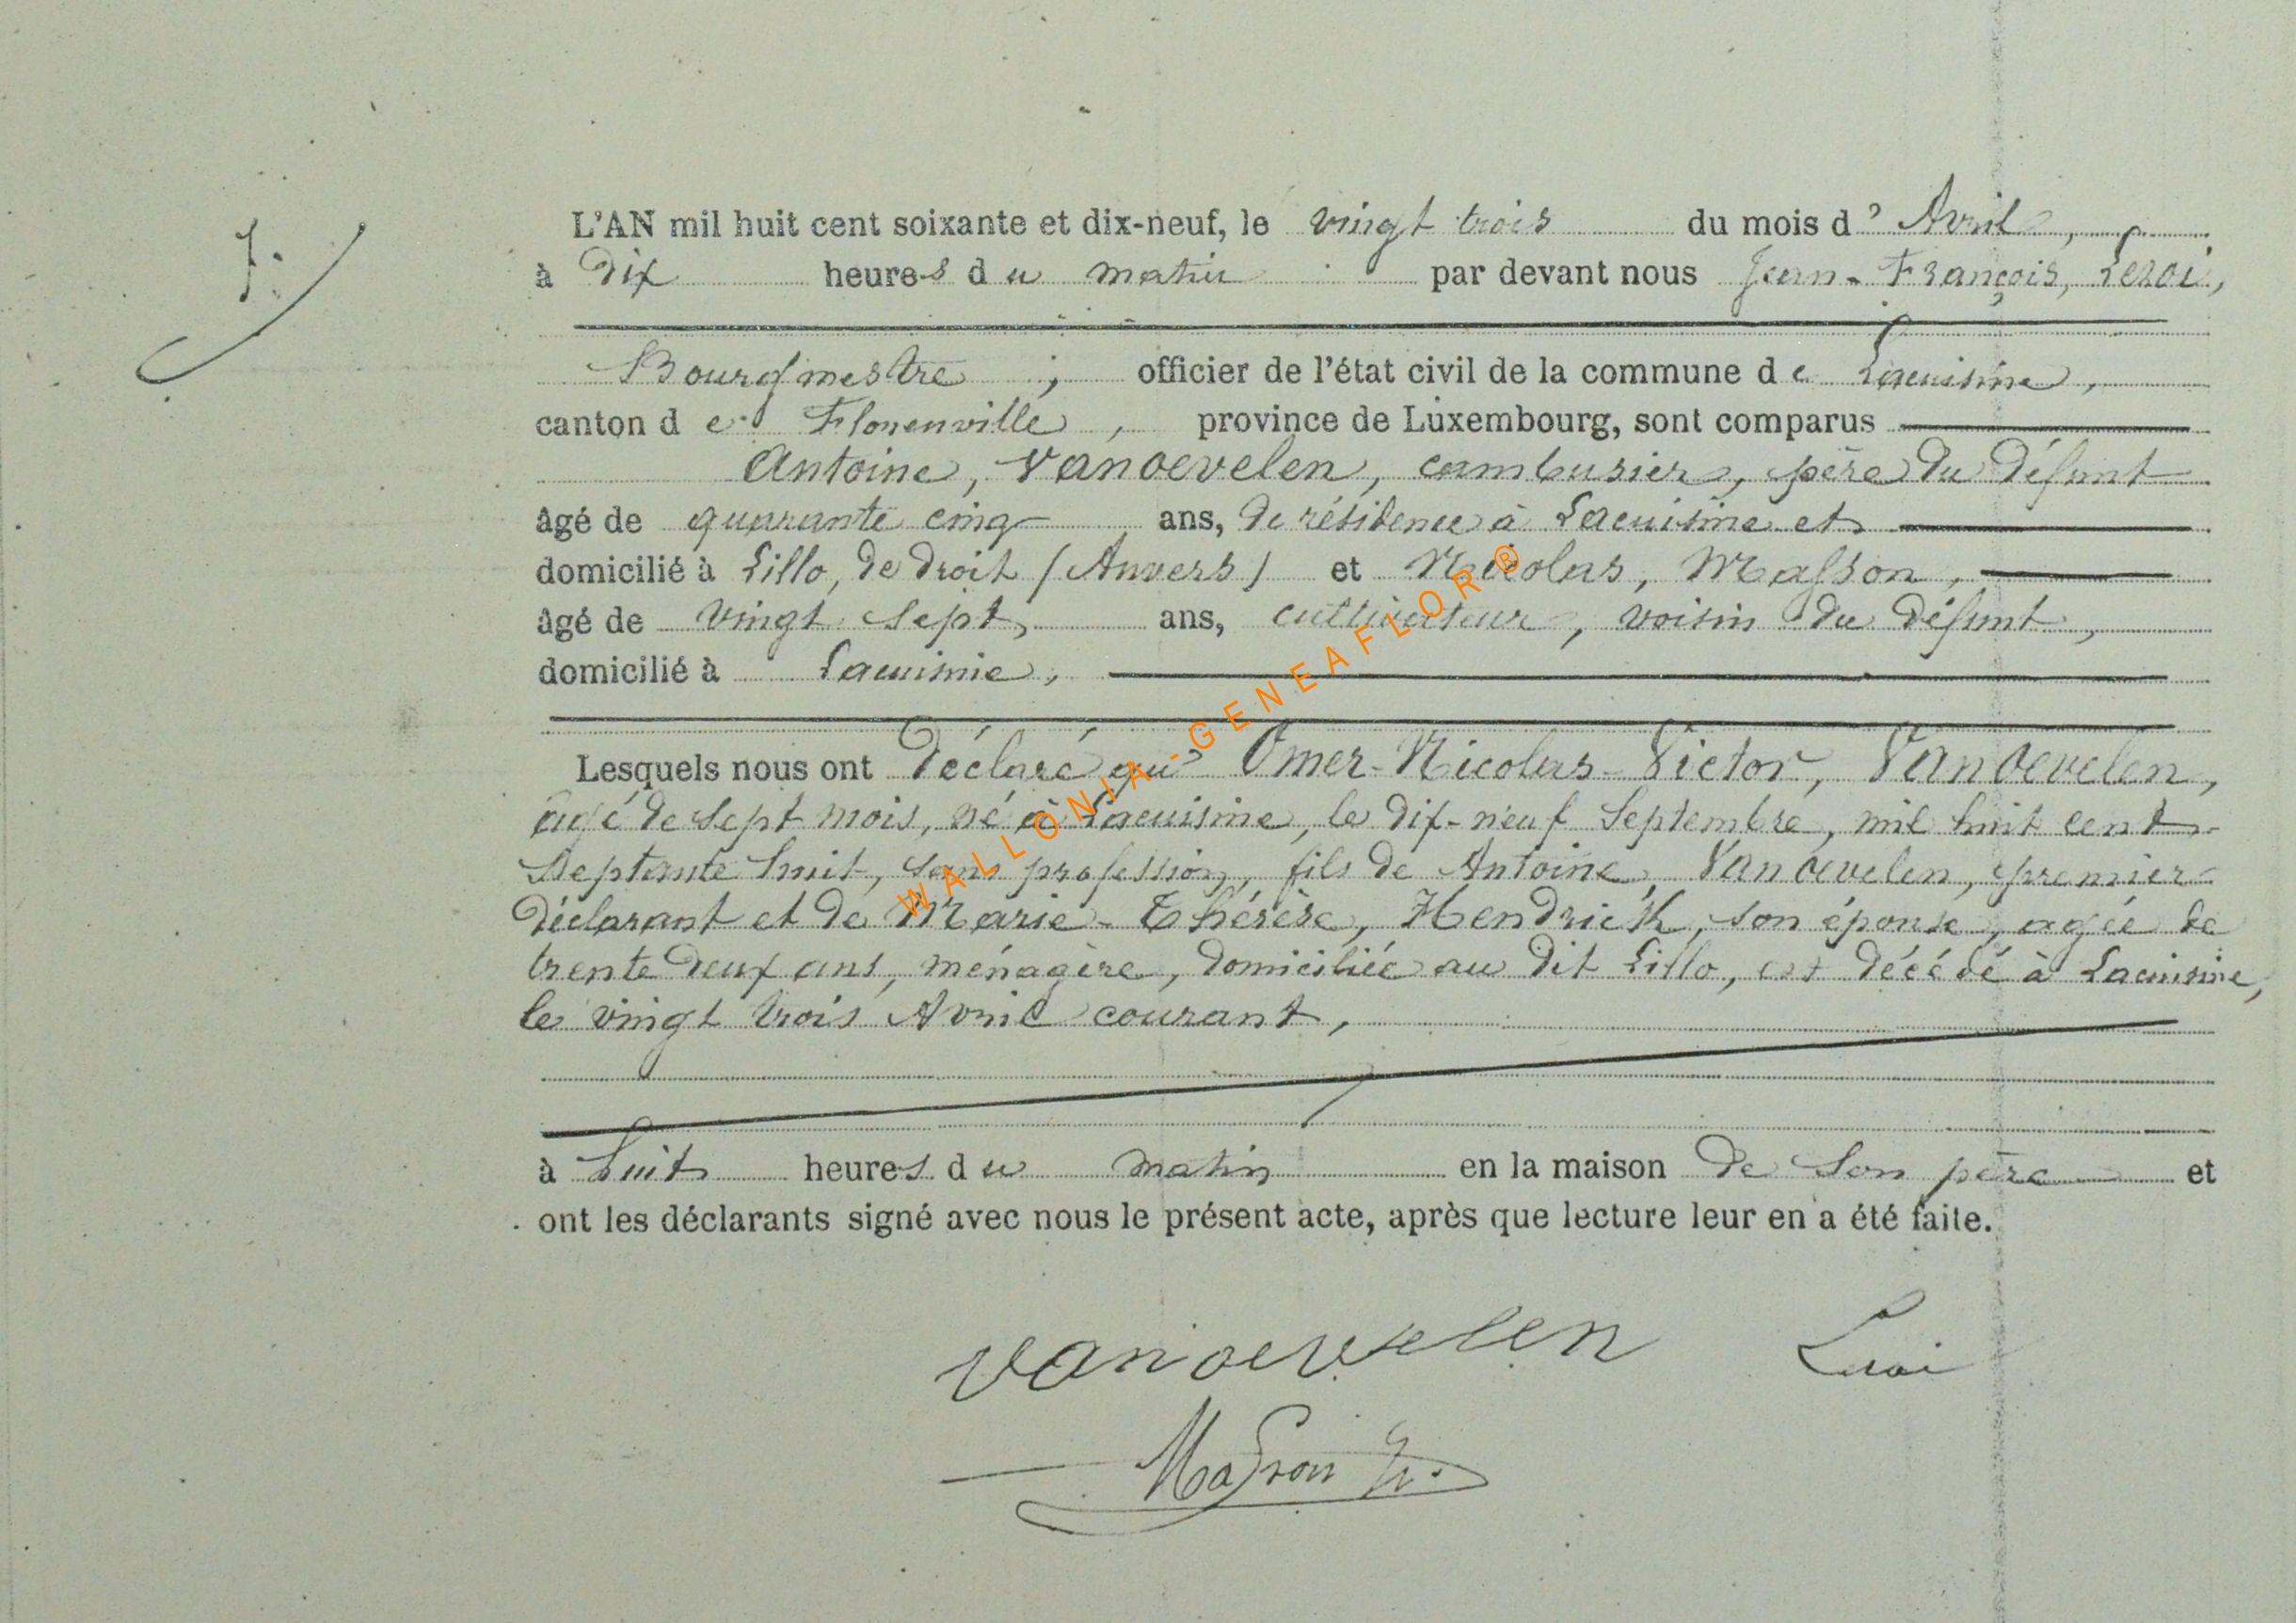 7.
L'AN mil huit cent soixante et dix-neuf, le vingt trois du mois d' Avril,
à Dix heures du matin par devant nous Jean-François, Leroi,
Bourgmestre, officier de l'état civil de la commune de Lacuisine,
canton de Florenville, province de Luxembourg, sont comparus
Antoine, Vanoevelen, cambusier, père du défunt
âgé de quarante cinq ans, de résidence à Lacuisine et
domicilié à Lillo, de droit (Anvers) et Nicolas, Masson,
âgé de vingt sept, ans, cultivateur, voisin du défunt,
domicilié à Lacuisine,
Lesquels nous ont déclaré qu' Omer-Nicolas-Victor, Vanoevelen,
agé de sept mois, né à Lacuisine, le dix-neuf Septembre, mil huit cent
septante huit, sans profession, fils de Antoine, Vanoevelen, premier
déclarant et de Marie-Thérèse, Hendrick, son épouse, agée de
trente deux ans, ménagère, domiciliée au dit Lillo, est décédé à Lacuisine,
le vingt trois Avril courant,
à huit heures du matin en la maison de son père et
ont les déclarants signé avec nous le présent acte, après que lecture leur en a été faite.
Vanoevelen Leroi
Masson N.
WALLONIA-GENEAFLOR®